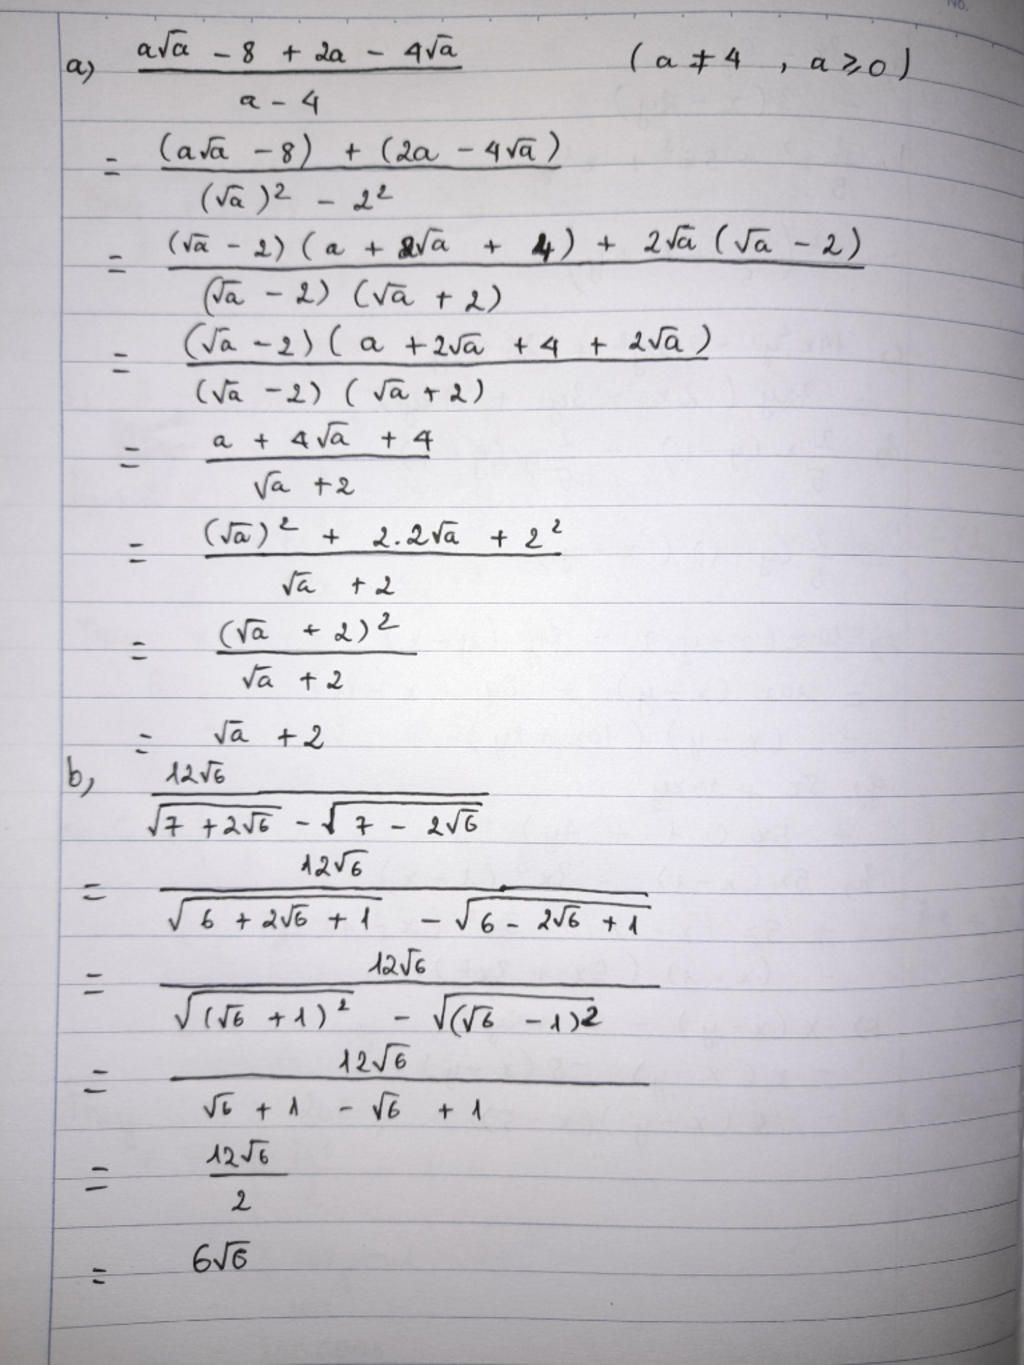 No.
a) a√a - 8 + 2a - 4√a / a - 4 (a ≠ 4, a ≥ 0)
= (a√a - 8) + (2a - 4√a) / (√a)² - 2²
= (√a - 2)(a + 2√a + 4) + 2√a(√a - 2) / (√a - 2)(√a + 2)
= (√a - 2)(a + 2√a + 4 + 2√a) / (√a - 2)(√a + 2)
= a + 4√a + 4 / √a + 2
= (√a)² + 2.2√a + 2² / √a + 2
= (√a + 2)² / √a + 2
= √a + 2
b, 12√6 / √(7 + 2√6) - √(7 - 2√6)
= 12√6 / √(6 + 2√6 + 1) - √(6 - 2√6 + 1)
= 12√6 / √((√6 + 1)²) - √((√6 - 1)²)
= 12√6 / √6 + 1 - √6 + 1
= 12√6 / 2
= 6√6